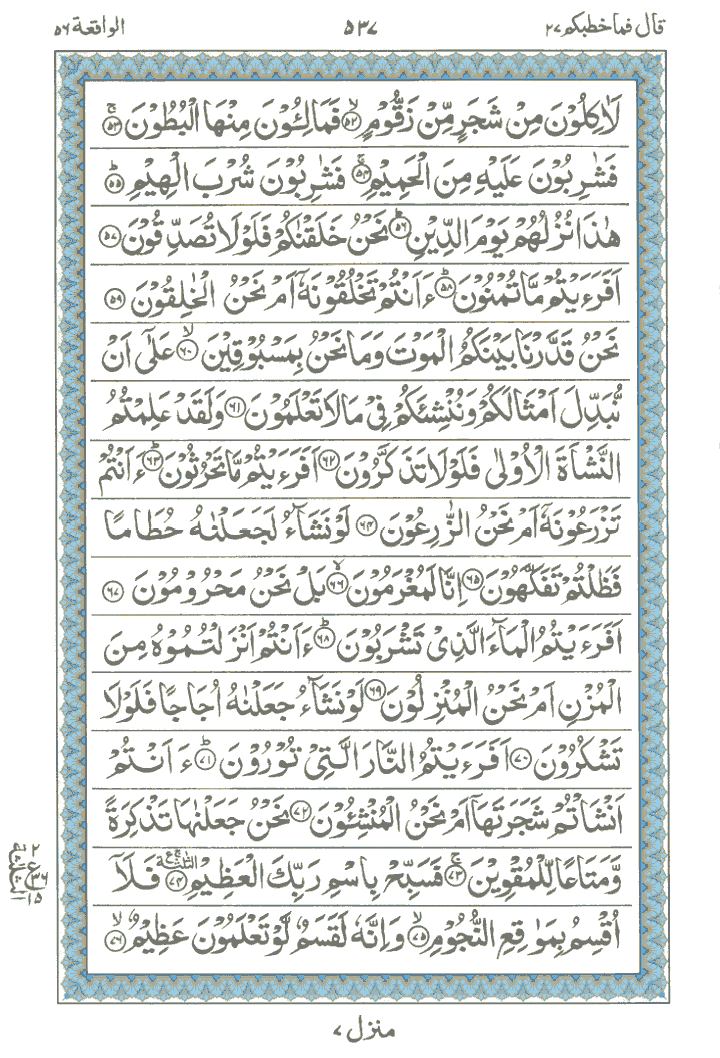 قال فماخطبكم ٢٧ ٥٣٧ الواقعة ٥٦
لَاٰكِلُوْنَ مِنْ شَجَرٍ مِّنْ زَقُّوْمٍۙ‏﴿۵۲﴾ فَمَالِـــُٔوْنَ مِنْهَا الْبُطُوْنَۚ‏﴿۵۳﴾
فَشٰرِبُوْنَ عَلَيْهِ مِنَ الْحَمِيْمِۚ‏﴿۵۴﴾ فَشٰرِبُوْنَ شُرْبَ الْهِيْمِؕ‏﴿۵۵﴾
هٰذَا نُزُلُهُمْ يَوْمَ الدِّيْنِؕ‏﴿۵۶﴾ نَحْنُ خَلَقْنٰكُمْ فَلَوْلَا تُصَدِّقُوْنَ‏﴿۵۷﴾
اَفَرَءَيْتُمْ مَّا تُمْنُوْنَؕ‏﴿۵۸﴾ ءَاَنْتُمْ تَخْلُقُوْنَهٗۤ اَمْ نَحْنُ الْخٰلِقُوْنَ‏﴿۵۹﴾
نَحْنُ قَدَّرْنَا بَيْنَكُمُ الْمَوْتَ وَمَا نَحْنُ بِمَسْبُوْقِيْنَۙ‏﴿۶۰﴾ عَلٰٓى اَنْ
نُّبَدِّلَ اَمْثَالَكُمْ وَنُنْشِئَكُمْ فِىْ مَا لَا تَعْلَمُوْنَ‏﴿۶۱﴾ وَلَقَدْ عَلِمْتُمُ
النَّشْاَةَ الْاُوْلٰى فَلَوْلَا تَذَكَّرُوْنَ‏﴿۶۲﴾ اَفَرَءَيْتُمْ مَّا تَحْرُثُوْنَؕ‏﴿۶۳﴾ ءَاَنْتُمْ
تَزْرَعُوْنَهٗۤ اَمْ نَحْنُ الزّٰرِعُوْنَ‏﴿۶۴﴾ لَوْ نَشَآءُ لَجَعَلْنٰهُ حُطَامًا
فَظَلْتُمْ تَفَكَّهُوْنَ‏﴿۶۵﴾ اِنَّا لَمُغْرَمُوْنَۙ‏﴿۶۶﴾ بَلْ نَحْنُ مَحْرُوْمُوْنَ‏﴿۶۷﴾
اَفَرَءَيْتُمُ الْمَآءَ الَّذِىْ تَشْرَبُوْنَؕ‏﴿۶۸﴾ ءَاَنْتُمْ اَنْزَلْتُمُوْهُ مِنَ
الْمُزْنِ اَمْ نَحْنُ الْمُنْزِلُوْنَ‏﴿۶۹﴾ لَوْ نَشَآءُ جَعَلْنٰهُ اُجَاجًا فَلَوْلَا
تَشْكُرُوْنَ‏﴿۷۰﴾ اَفَرَءَيْتُمُ النَّارَ الَّتِىْ تُوْرُوْنَؕ‏﴿۷۱﴾ ءَاَنْتُمْ
اَنْشَاْتُمْ شَجَرَتَهَاۤ اَمْ نَحْنُ الْمُنْشِـــُٔوْنَ‏﴿۷۲﴾ نَحْنُ جَعَلْنٰهَا تَذْكِرَةً
وَّمَتَاعًا لِّلْمُقْوِيْنَۚ‏﴿۷۳﴾ فَسَبِّحْ بِاسْمِ رَبِّكَ الْعَظِيْمِ‏﴿۷۴﴾ فَلَاۤ
اُقْسِمُ بِمَوٰقِعِ النُّجُوْمِۙ‏﴿۷۵﴾ وَاِنَّهٗ لَقَسَمٌ لَّوْ تَعْلَمُوْنَ عَظِيْمٌۙ‏﴿۷۶﴾
منزل ٧